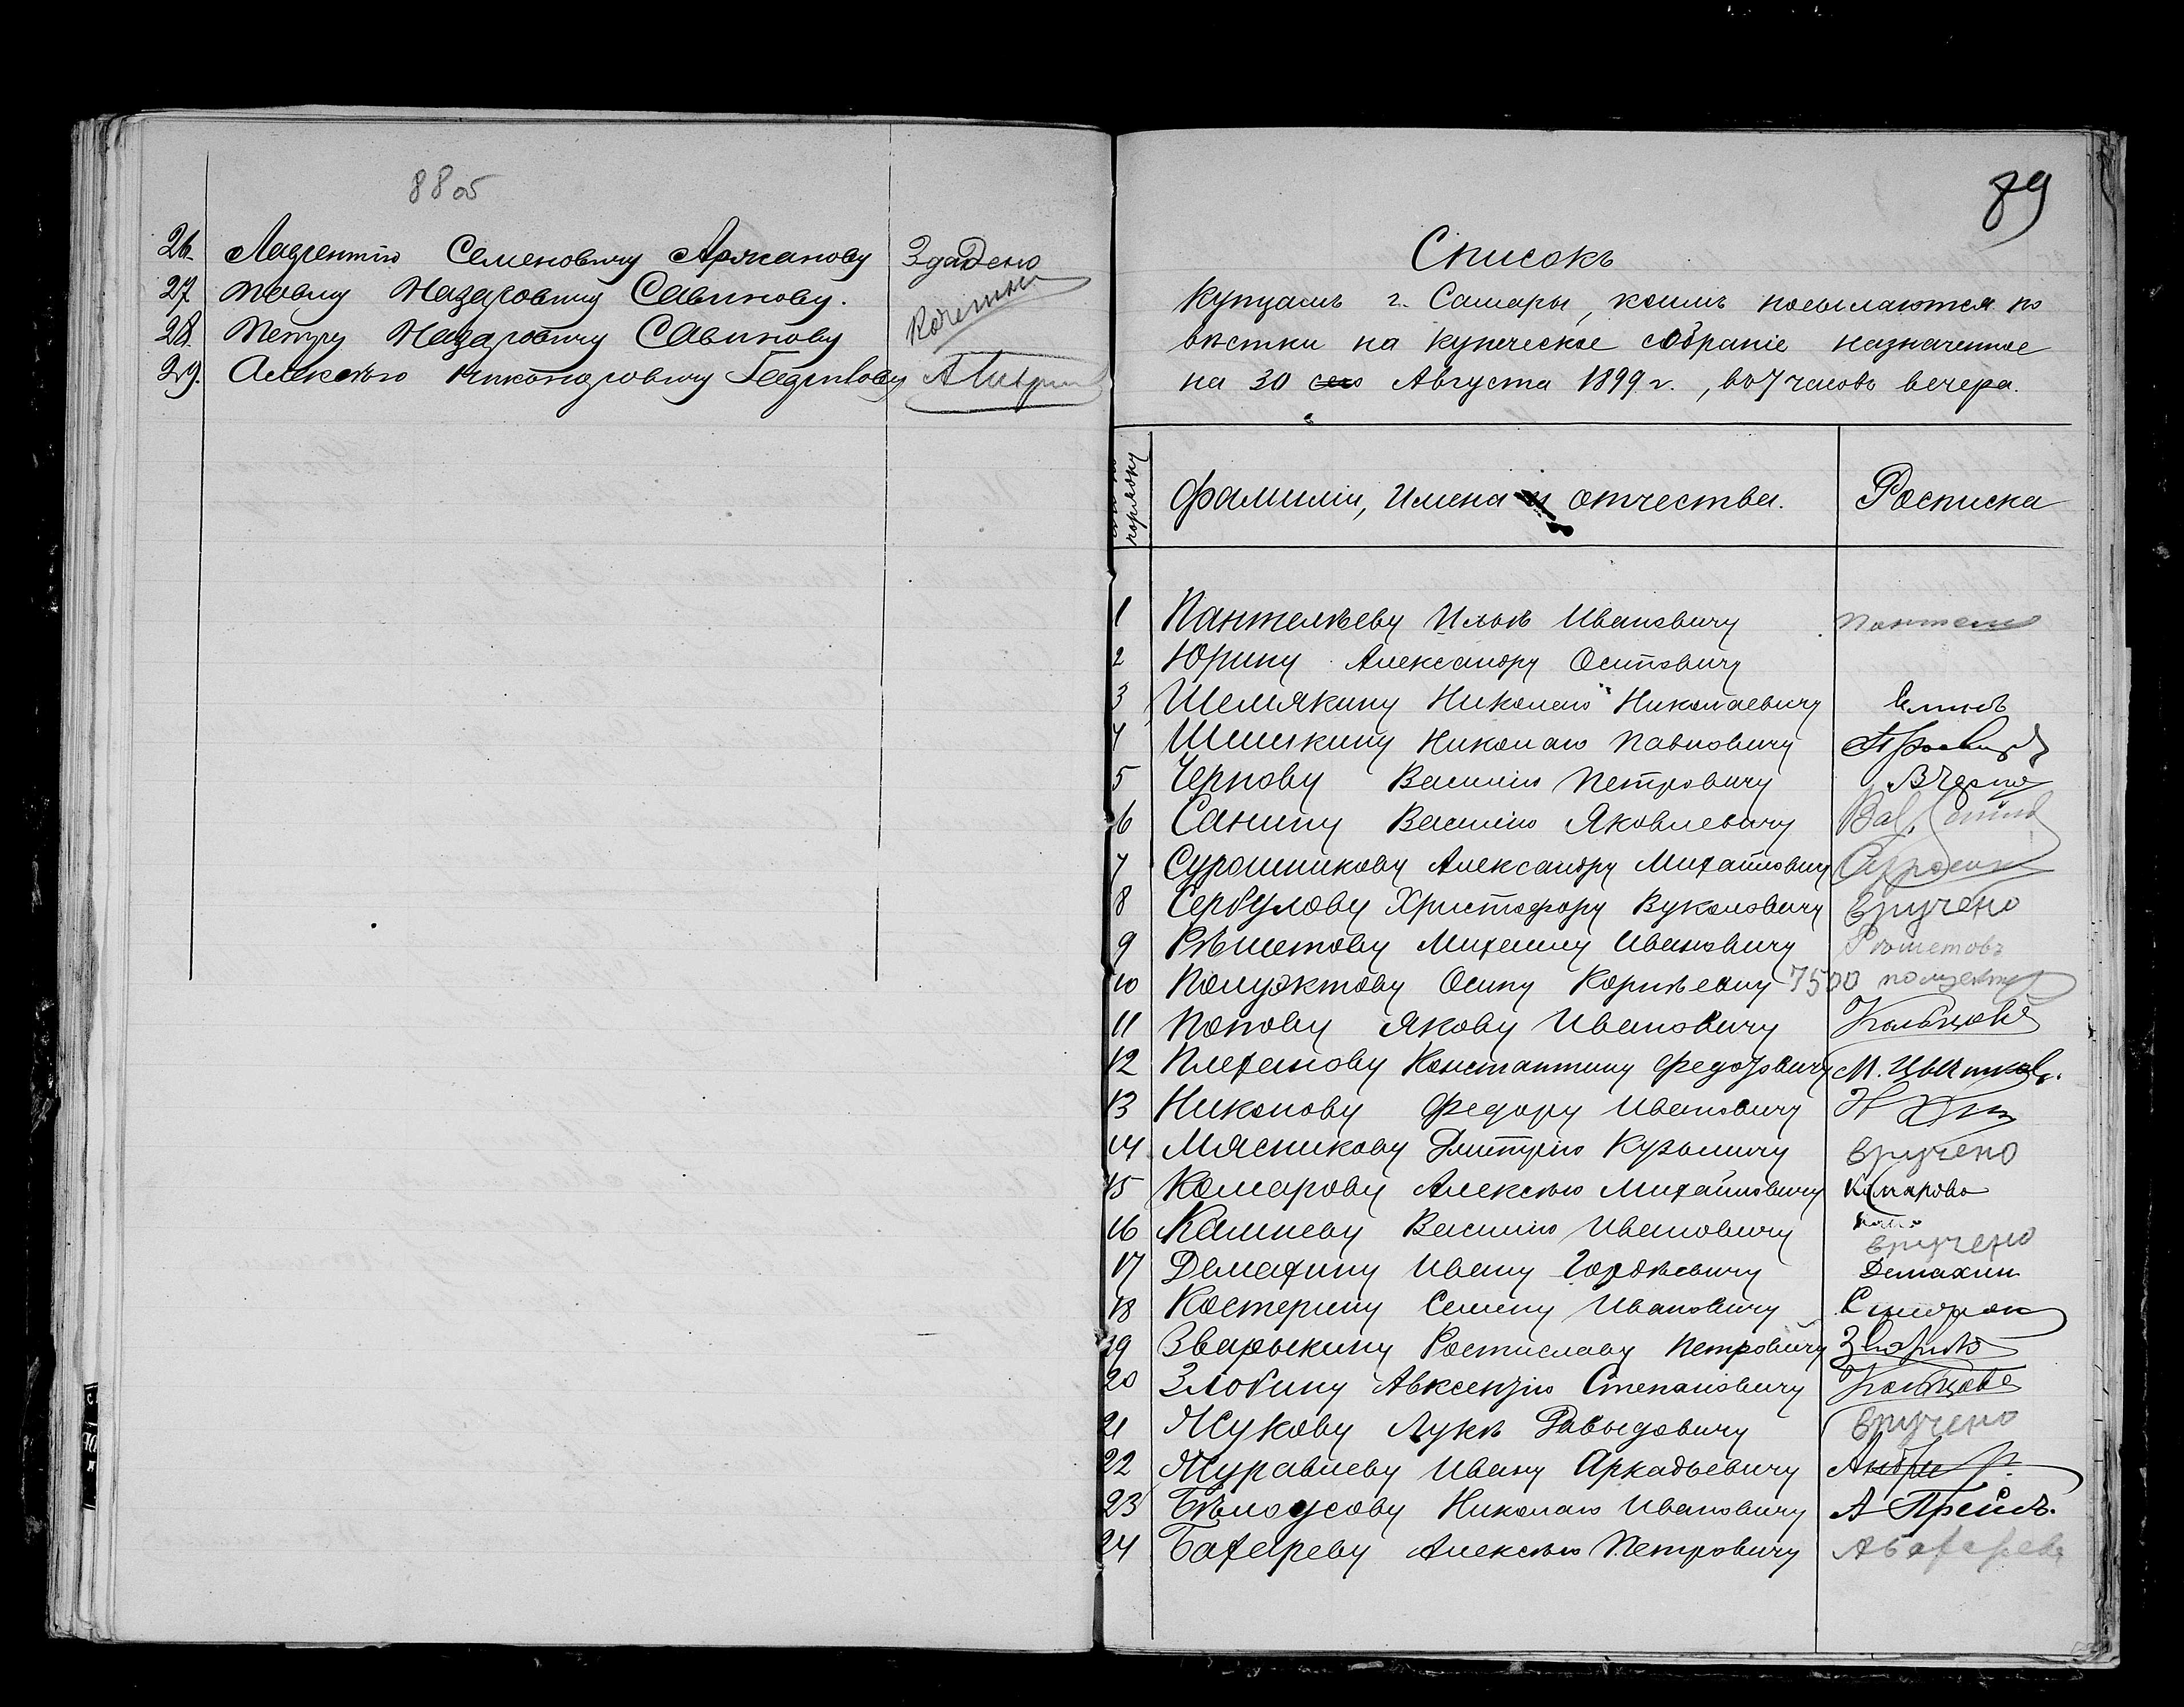 88 об
26. Лаврентію Семеновичу Аржанову Здадено
27. Павлу Назаровичу Савинову.
28. Петру Назаровичу Савинову
29. Алексѣю Никоноровичу
89
Списокъ
купцамъ г. Самары, коимъ посылаются по
вѣстки на купеческое собраніе назначенное
на 30 сего Августа 1899 г., въ 7 часовъ вечера.
порядку Фамиліи, Имена и отчества. Росписка
1 Пантелѣеву Ильѣ Ивановичу
2 Юрину Александру Осиповичу
3 Шемякину Николаю Николаевичу
4 Шишкину Николаю Павловичу
5 Чернову Василію Петровичу
6 Санину Василію Яковлевичу
7 Сурошникову Александру Михайловичу
8 Сербулову Христофору Вуколовичу вручено
9 Рѣшетову Михаилу Ивановичу Рѣшетовъ
10 Полуэктову Осипу Корнѣевичу 7500
11 Попову Якову Ивановичу Кольцовъ
12 Плеханову Константину Федоровичу
13 Никонову Федору Ивановичу
14 Мясникову Дмитрію Кузьмичу вручено
15 Комарову Алексѣю Михайловичу Комаровъ
16 Кашаеву Василію Ивановичу вручено
17 Демахину Ивану Гордѣевичу Демахин
18 Костерину Семену Ивановичу
19 Зварыкину Ростиславу Петровичу
20 Злобину Авксентію Степановичу Кольцовъ
21 Жукову Лукѣ Давыдовичу вручено
22 Журавлеву Ивану Аркадьевичу
23 Бѣлоусову Николаю Ивановичу
24 Бахареву Алексѣю Петровичу А Бахаревъ